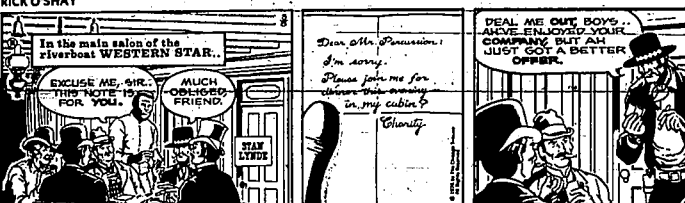 RICK O'SHAY
In the main salon of the
riverboat WESTERN STAR..
EXCUSE ME, SIR..
THIS NOTE IS
FOR YOU.
MUCH
OBLIGED,
FRIEND.
STAN
LYNDE
Dear Mr. Percussion:
I'm sorry.
Please join me for
dinner this evening
in my cabin?
Charity
DEAL ME OUT, BOYS..
AH'VE ENJOYED YOUR
COMPANY, BUT AH
JUST GOT A BETTER
OFFER.